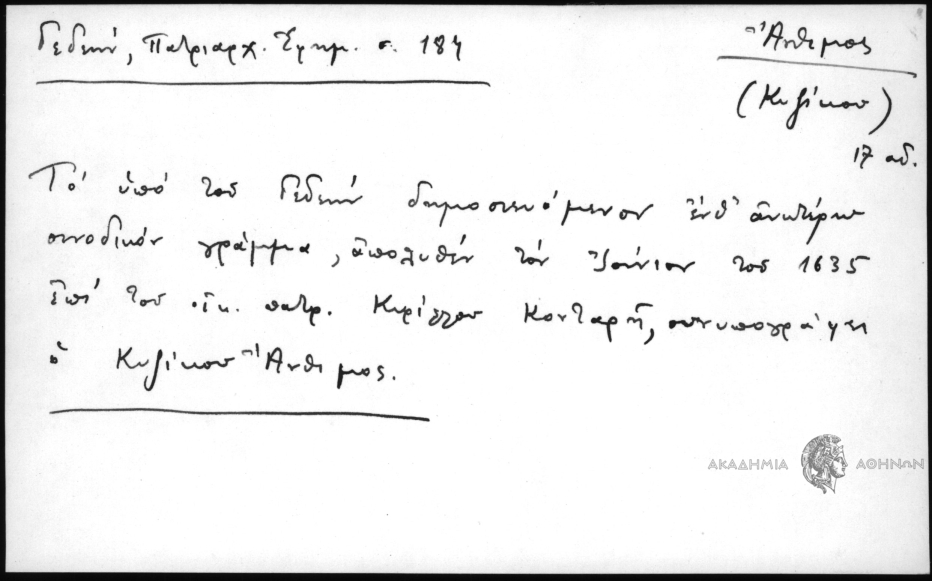 Γεδεών, Πατριαρχ. Ἐφημ. σ. 184
Ἄνθιμος
(Κυζίκου)
17 αἰ.
Τό ὑπό τοῦ Γεδεών δημοσιευόμενον ἐνθ' ἀνωτέρω
συνοδικόν γράμμα, ἀπολυθέν τόν Ἰούνιον τοῦ 1635
ἐπί τοῦ οἰκ. πατρ. Κυρίλλου Κονταρῆ, συνυπογράφει
ὁ Κυζίκου Ἄνθιμος.
ΑΚΑΔΗΜΙΑ ΑΘΗΝΩΝ